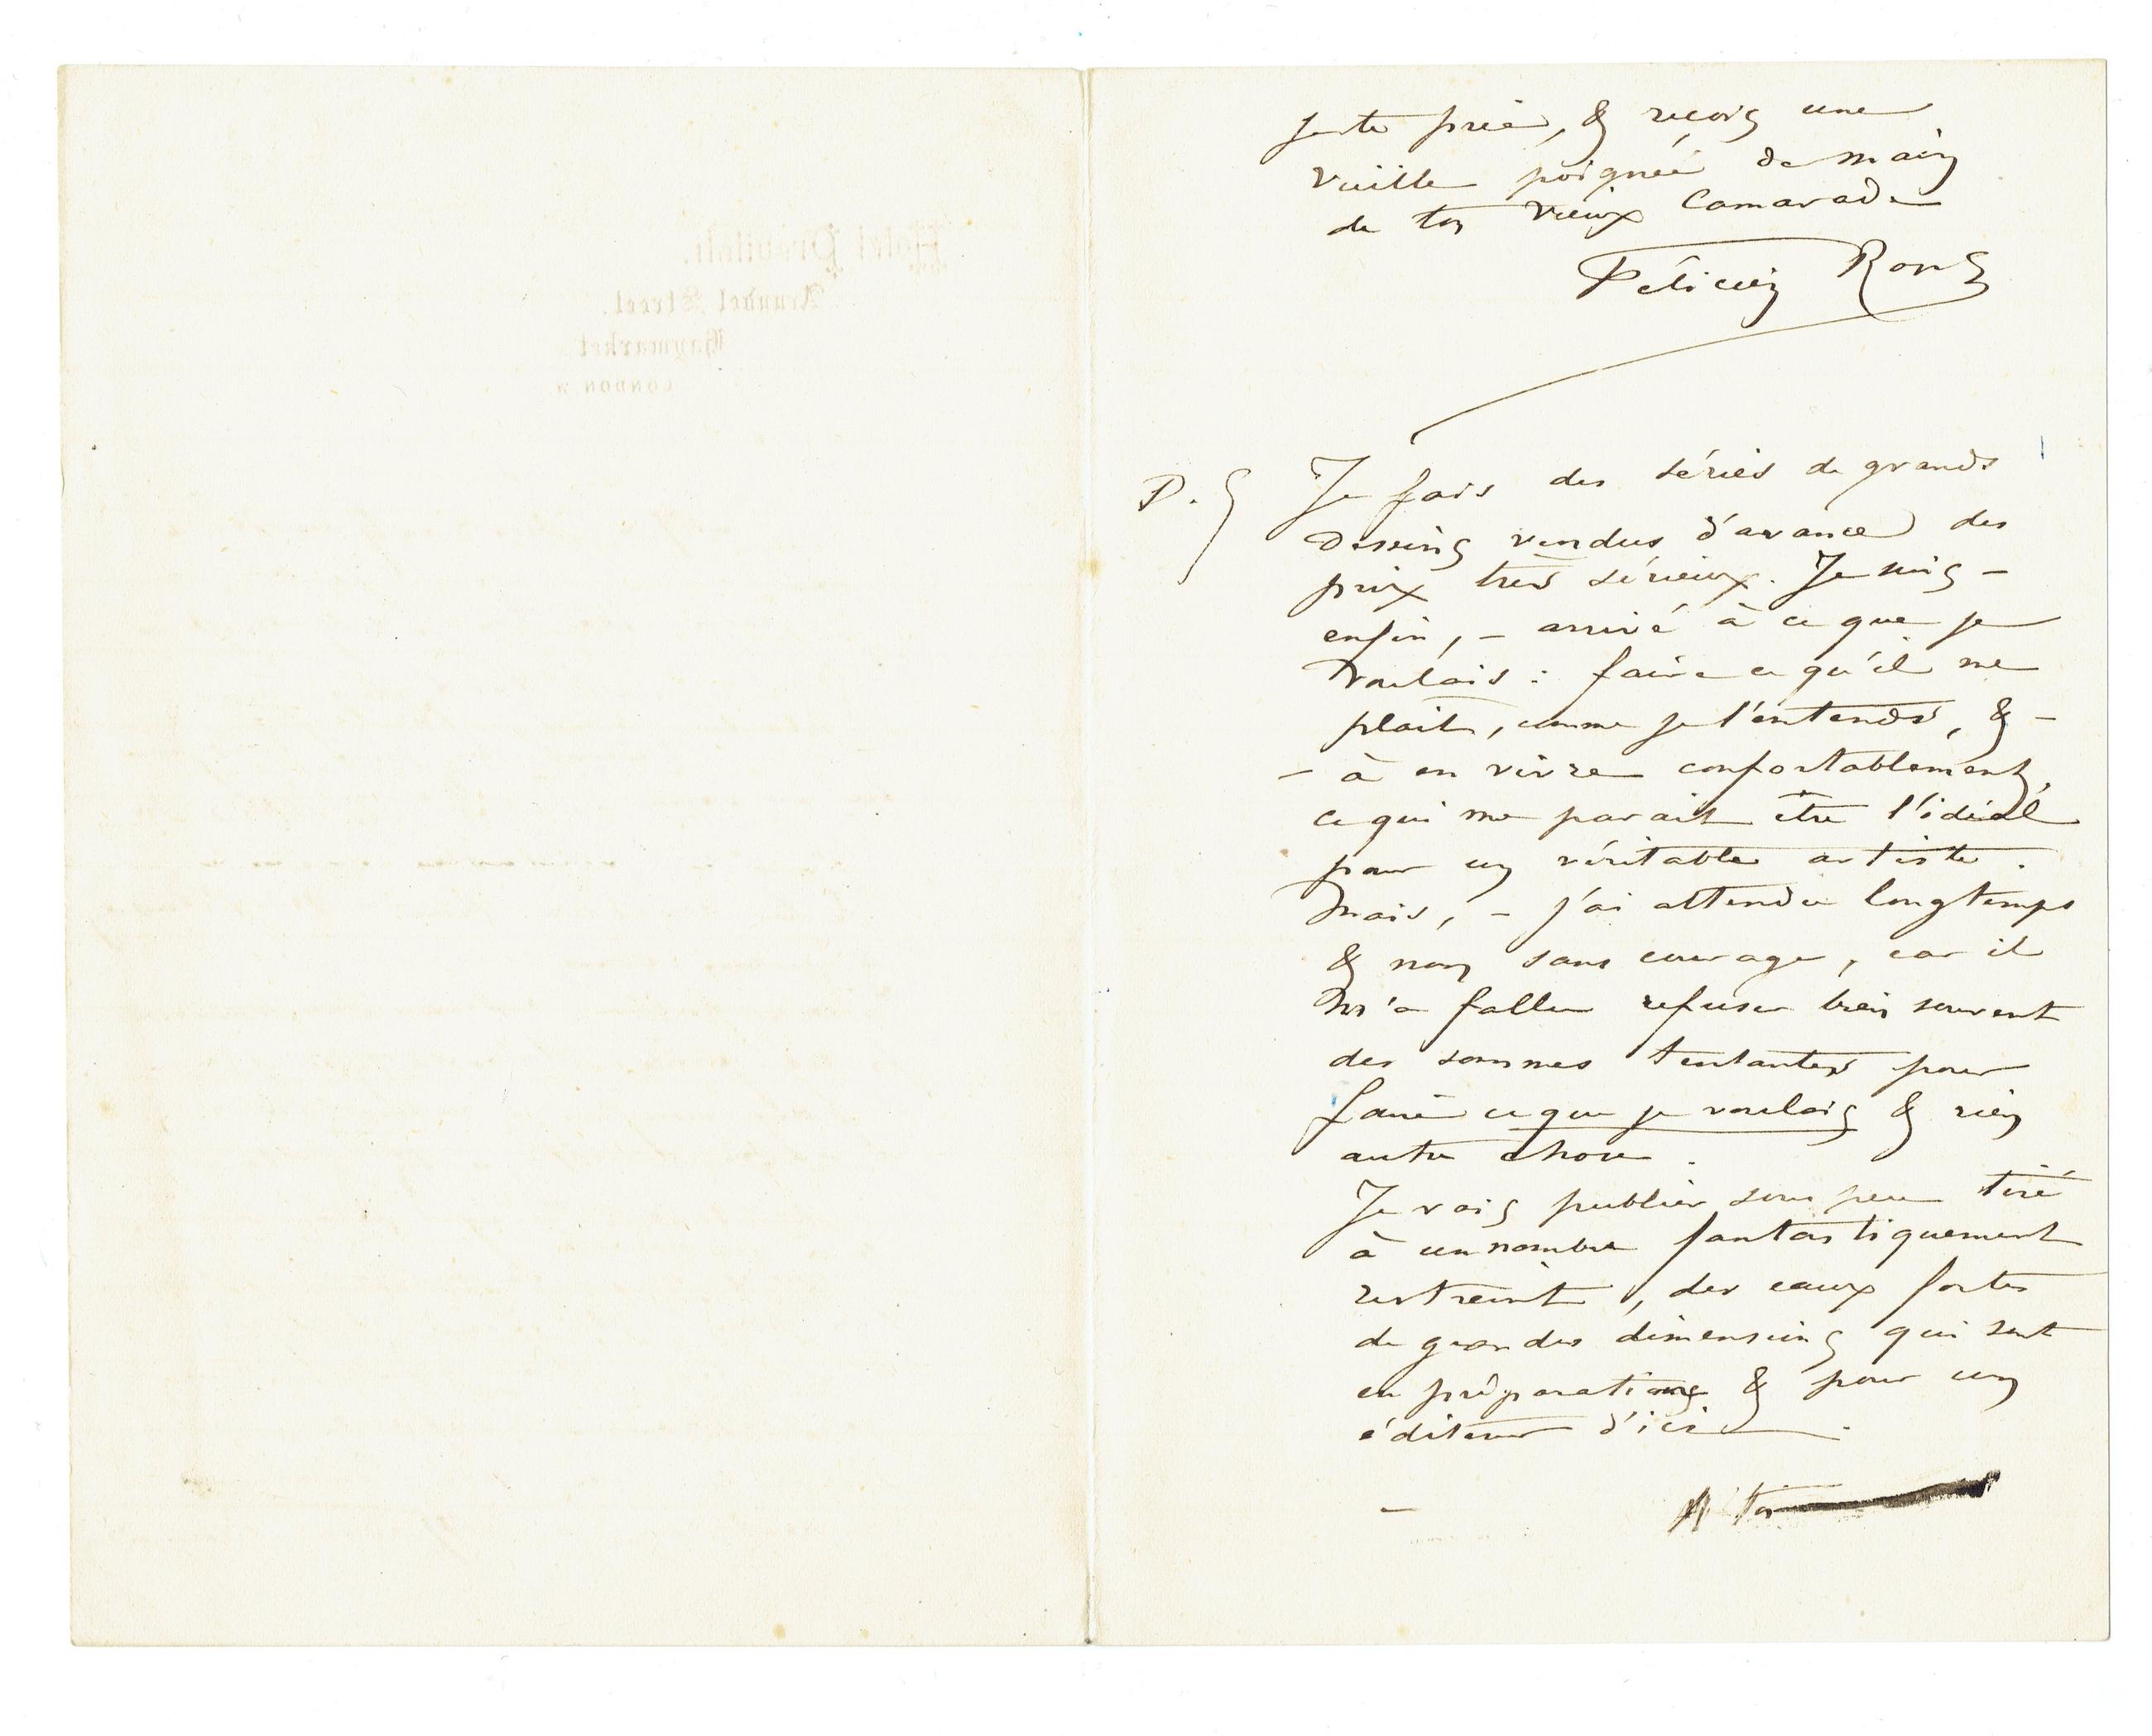 Hotel Previtali.
Arundel Street.
Haymarket
LONDON W
je te prie, & reçois une
vieille poignée de main
de ton vieux Camarade
Félicien Rops
P.S Je fais des séries de grands
dessins vendus d'avance des
prix très sérieux. Je suis –
enfin, – arrivé à ce que je
voulais : faire ce qu'il me
plait, comme je l'entends, & –
– à en vivre confortablement,
ce qui me parait être l'idéal
pour un véritable artiste.
Mais, – j'ai attendu longtemps
& non sans courage, car il
m'a fallu refuser bien souvent
des sommes tentantes pour
faire ce que je voulais & rien
autre chose.
Je vais publier sous peu tiré
à un nombre fantastiquement
restreint, des eaux fortes
de grandes dimensions qui sont
en préparations & pour un
éditeur d'ici.
– A toi